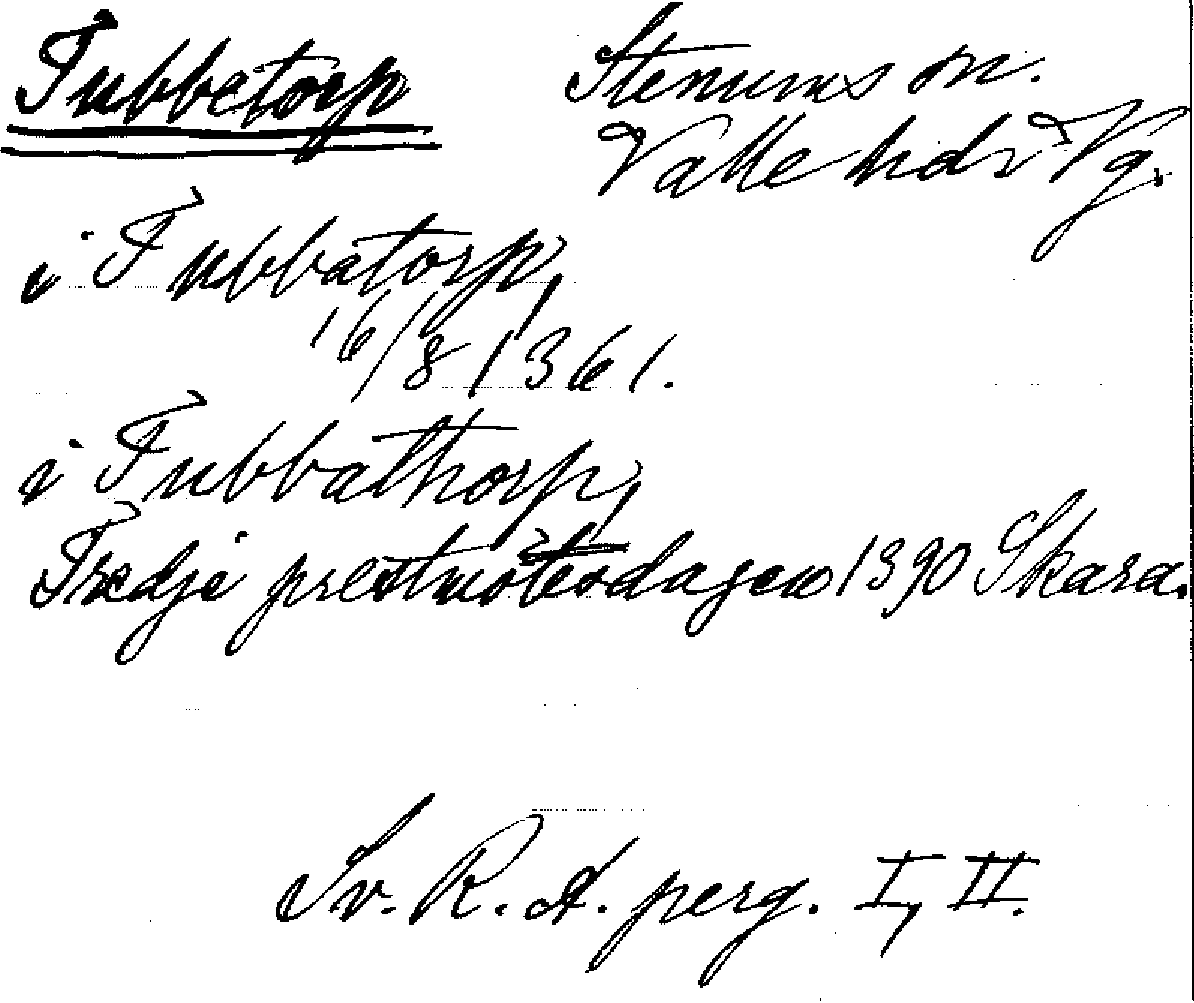 Tubbetorp
Stenums sn.
Valle hds Vg.
i Tubbatorp,
16/8 1361.
i Tubbathorp,
Tredje prestmötesdagen 1390 Skara.
Sv. R. A. perg. I, II.